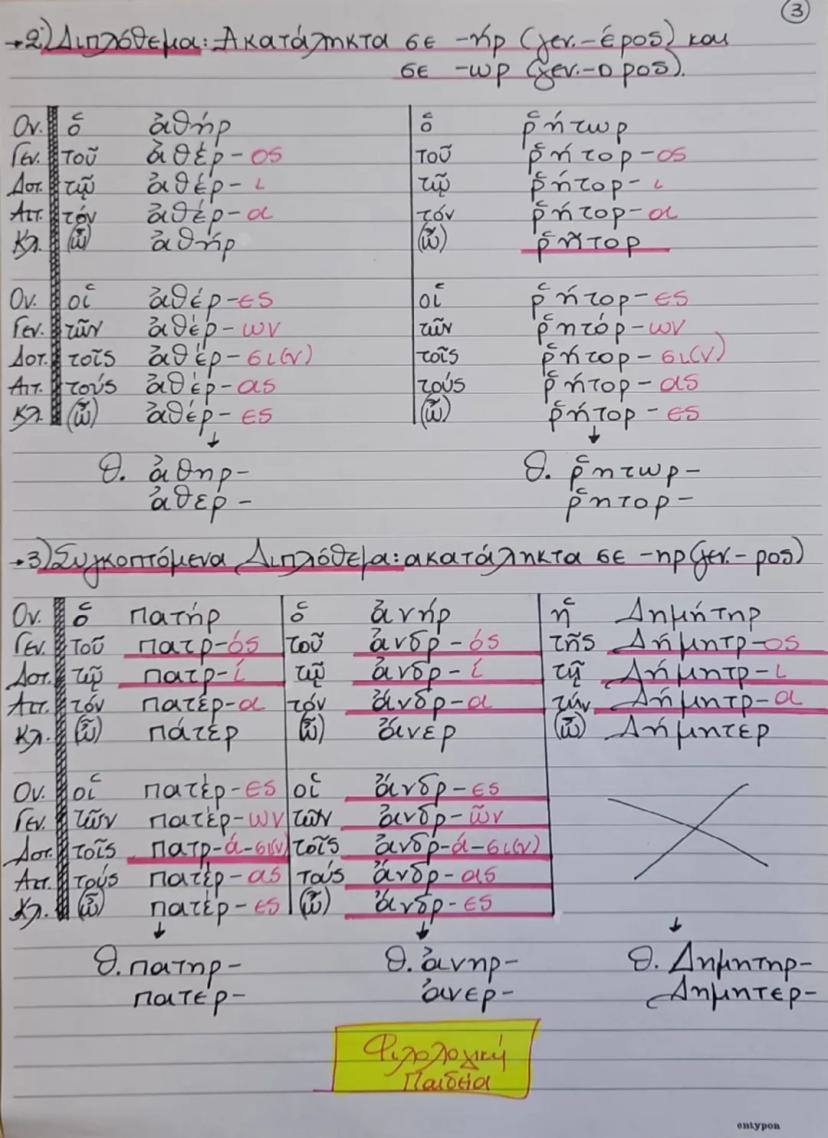 3
→2) Διπλόθεμα: Ακατάληκτα σε -ήρ (γεν.-έρος) και
σε -ωρ (γεν.-ορος).
Ον. ὁ ἀθήρ ὁ ῥήτωρ
Γεν. τοῦ ἀθέρ-ος τοῦ ῥήτορ-ος
Δοτ. τῷ ἀθέρ-ι τῷ ῥήτορ-ι
Αιτ. τόν ἀθέρ-α τόν ῥήτορ-α
Κλ. (ὦ) ἀθήρ (ὦ) ῥῆτορ
Ον. οἱ ἀθέρ-ες οἱ ῥήτορ-ες
Γεν. τῶν ἀθέρ-ων τῶν ῥητόρ-ων
Δοτ. τοῖς ἀθέρ-σι(ν) τοῖς ῥήτορ-σι(ν)
Αιτ. τούς ἀθέρ-ας τούς ῥήτορ-ας
Κλ. (ὦ) ἀθέρ-ες (ὦ) ῥήτορ-ες
↓ ↓
θ. ἀθηρ- θ. ῥητωρ-
ἀθερ- ῥητορ-
→3) Συγκοπτόμενα Διπλόθεμα: ακατάληκτα σε -ηρ(γεν.-ρος)
Ον. ὁ πατήρ ὁ ἀνήρ ἡ Δημήτηρ
Γεν. τοῦ πατρ-ός τοῦ ἀνδρ-ός τῆς Δήμητρ-ος
Δοτ. τῷ πατρ-ί τῷ ἀνδρ-ί τῇ Δήμητρ-ι
Αιτ. τόν πατέρ-α τόν ἄνδρ-α τήν Δήμητρ-α
Κλ. (ὦ) πάτερ (ὦ) ἄνερ (ὦ) Δήμητερ
Ον. οἱ πατέρ-ες οἱ ἄνδρ-ες
Γεν. τῶν πατέρ-ων τῶν ἀνδρ-ῶν
Δοτ. τοῖς πατρ-ά-σι(ν) τοῖς ἀνδρ-ά-σι(ν)
Αιτ. τούς πατέρ-ας τούς ἄνδρ-ας
Κλ. (ὦ) πατέρ-ες (ὦ) ἄνδρ-ες
↓ ↓ ↓
θ. πατηρ- θ. ἀνηρ- θ. Δημητηρ-
πατερ- ἀνερ- Δημητερ-
Φιλολογική
Παιδεία
entypon